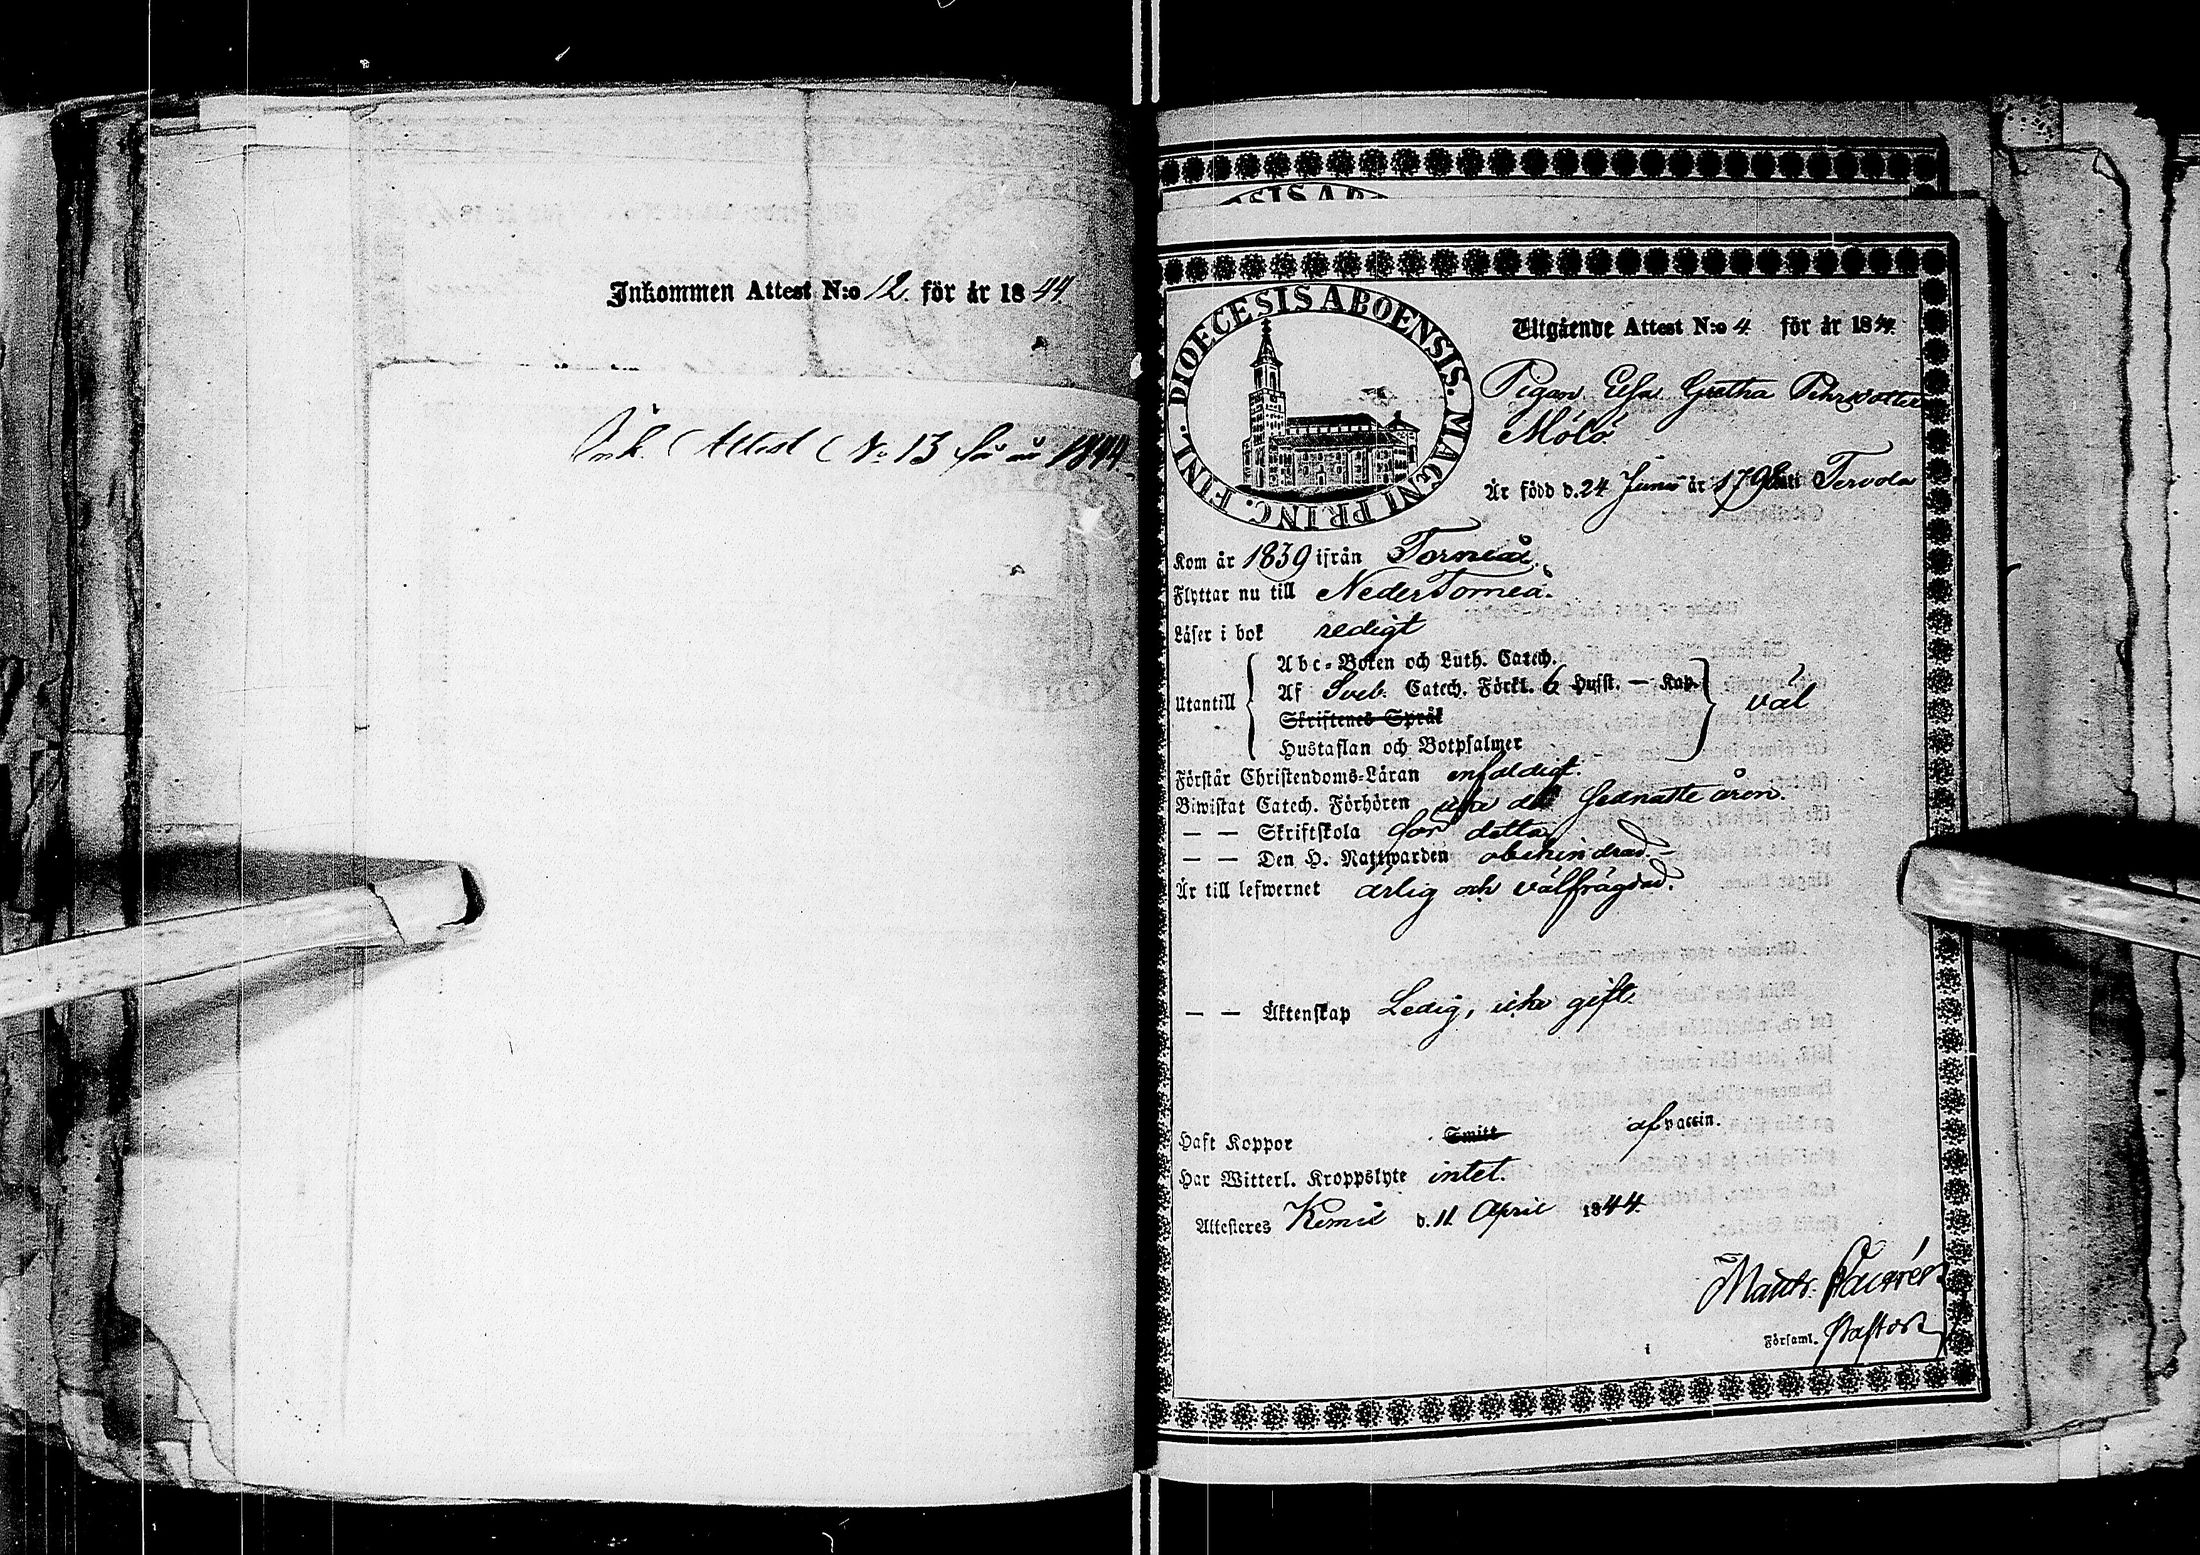 Inkommen Attest N:o 12. för år 1844
Ink. Attest No 13 för år 1844
SIS AB
DIOECESIS ABOENSIS. MAGNI PRINC. FINL.
Utgående Attest N:o 4 för år 1844.
Pigan Elsa Gretha Pehrsdotter
Mölö
Är född d. 24 Junii år 179 uti Tervola
Kom år 1839 ifrån Torneå.
Flyttar nu till Neder Torneå.
Läser i bok redigt
Abc-Boken och Luth. Catech.
Utantill Af Sveb. Catech. Förkl. 6 Hufst. — Kap. väl
Skriftenes Språk
Hustaflan och Botpsalmer
Förstår Christendoms-Läran enfaldigt.
Biwistat Catech. Förhören icke de sednaste åren.
— — Skriftskola för detta
— — Den H. Nattwarden obehindrad.
Är till lefwernet ärlig och välfrägdad.
— — Äktenskap Ledig, icke gift.
Haft Koppor Smitt af vaccin.
Har Witterl. Kroppslyte intet.
Attesteres Kemi d. 11 April 1844.
Matts.
Församl. Pastor